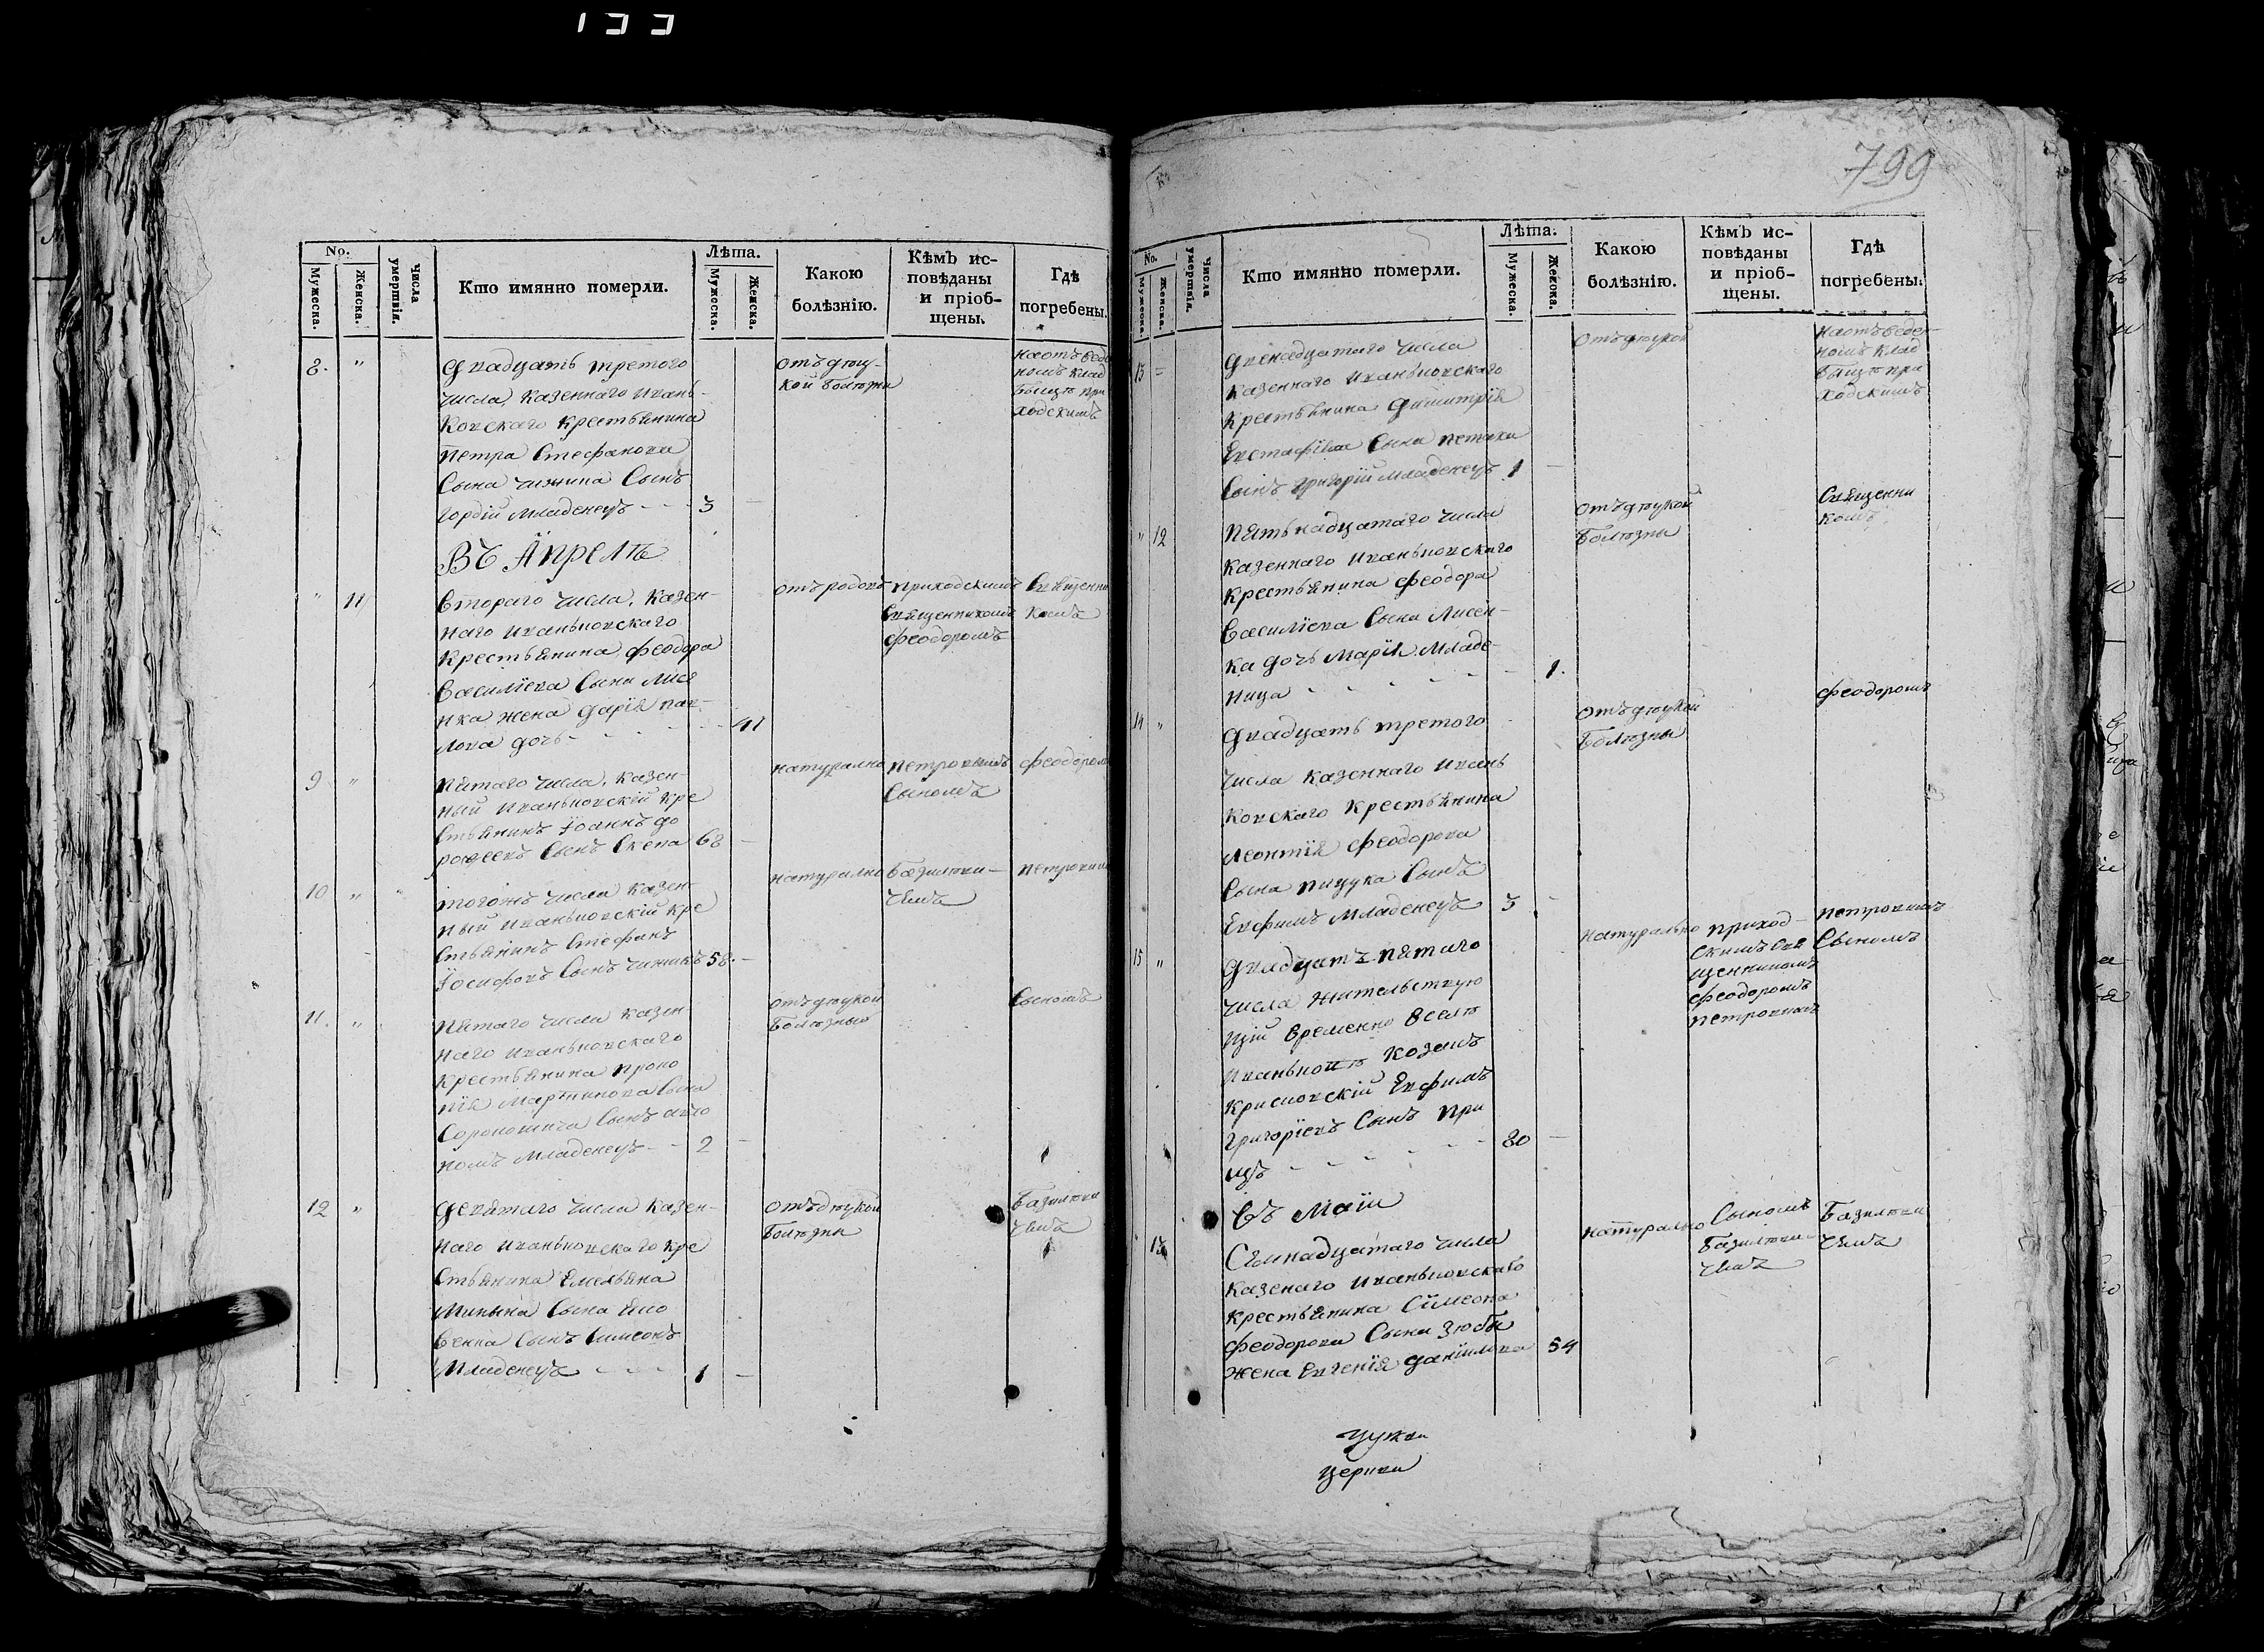 133
No.
Мужеска.
Женска.
Числа умертвія.
Кто имянно померли.
Лѣта.
Мужеска.
Женска.
Какою болѣзнію.
Кѣмъ ис-
повѣданы
и пріоб-
щены.
Гдѣ
погребены.
8. "
Двадцать третого
числа, казеннаго Ивань-
ковскаго крестьянина
Петра Стефанова
Сына Чижика Сынъ
Гордій младенецъ - - - 3 -
отъ дѣцу-
кой болѣзни
на отъведе
номъ клад
бищѣ при
ходскимъ
Въ Апрелѣ
" 11
втораго числа, казен-
наго Иваньковскаго
крестьянина, Феодора
Василіева Сына Лисе
нка жена Дарія Пав-
лова дочь - - - 41
отъ родовъ
приходскимъ
Священникомъ
Феодоромъ
Священни
комъ
9 "
Пятаго числа, казен-
ный Иваньковскій кре
стьянинъ Іоаннъ До
рофеевъ Сынъ 68 -
натурално
Петровымъ
Сыномъ
Феодоромъ
10 "
тогожъ числа казен-
ный Иваньковскій кре
стьянинъ Стефанъ
Іосифовъ Сынъ Чижикъ 58. -
натурално
Базилѣви-
чемъ
Петровым
11. "
Пятаго числа казен-
наго Иваньковскаго
крестьянина Проко
пія Мартинова Сына
Сынъ
младенецъ - - 2 -
отъ дѣцукой
болѣзные
Сыномъ
12 "
Девятаго числа казен-
наго Иваньковскаго кре
стьянина Емельяна
Сына
Сынъ Симеонъ
младенецъ - - - 1 -
отъ дѣцукой
болѣзни
Базилѣви
чемъ
799
No.
Мужеска.
Женска.
Числа умертвія.
Кто имянно померли.
Лѣта.
Мужеска.
Женска.
Какою
болѣзнію.
Кѣмъ ис-
повѣданы
и пріоб-
щены.
Гдѣ
погребены.
13 -
Двенадцатаго числа
казеннаго Иваньковскаго
крестьянина Димитрія
Евстафіева Сына
Сынъ Григорій младенецъ 1 -
отъ дѣцукой
на отъведен-
номъ клад
бищѣ при
ходскимъ
" 12
Пятьнадцатаго числа
казеннаго Иваньковскаго
крестьянина Феодора
Василіева Сына Лисен-
ка дочь Марія младе-
ница - - - - - 1.
отъ дѣцукой
болѣзни
Священни
комъ
14 "
Двадцать третого
числа казеннаго Ивань
ковскаго крестьянина
Леонтія Феодорова
Сына Пицука Сынъ
Евфимъ младенецъ 3 -
отъ дѣцукой
болѣзни
Феодоромъ
15 "
Двадцать пятаго
числа жительствую
щій временно в селѣ
Иваньковѣ козакъ
Евфимъ
Григоріевъ Сынъ При
щъ - - - - - 80 -
натурально
приход-
скимъ Свя
щенникомъ
Феодоромъ
Петровимъ
Петровимъ
Сыномъ
Въ Маіи
" 13
Семнадцатаго числа
казенаго Иваньковскаго
крестьянина Симеона
Феодорова Сына Зюбы
жена Евгенія Даніилова 54
натурально
Сыномъ
Базилѣви-
чемъ
Базилѣви
чемъ